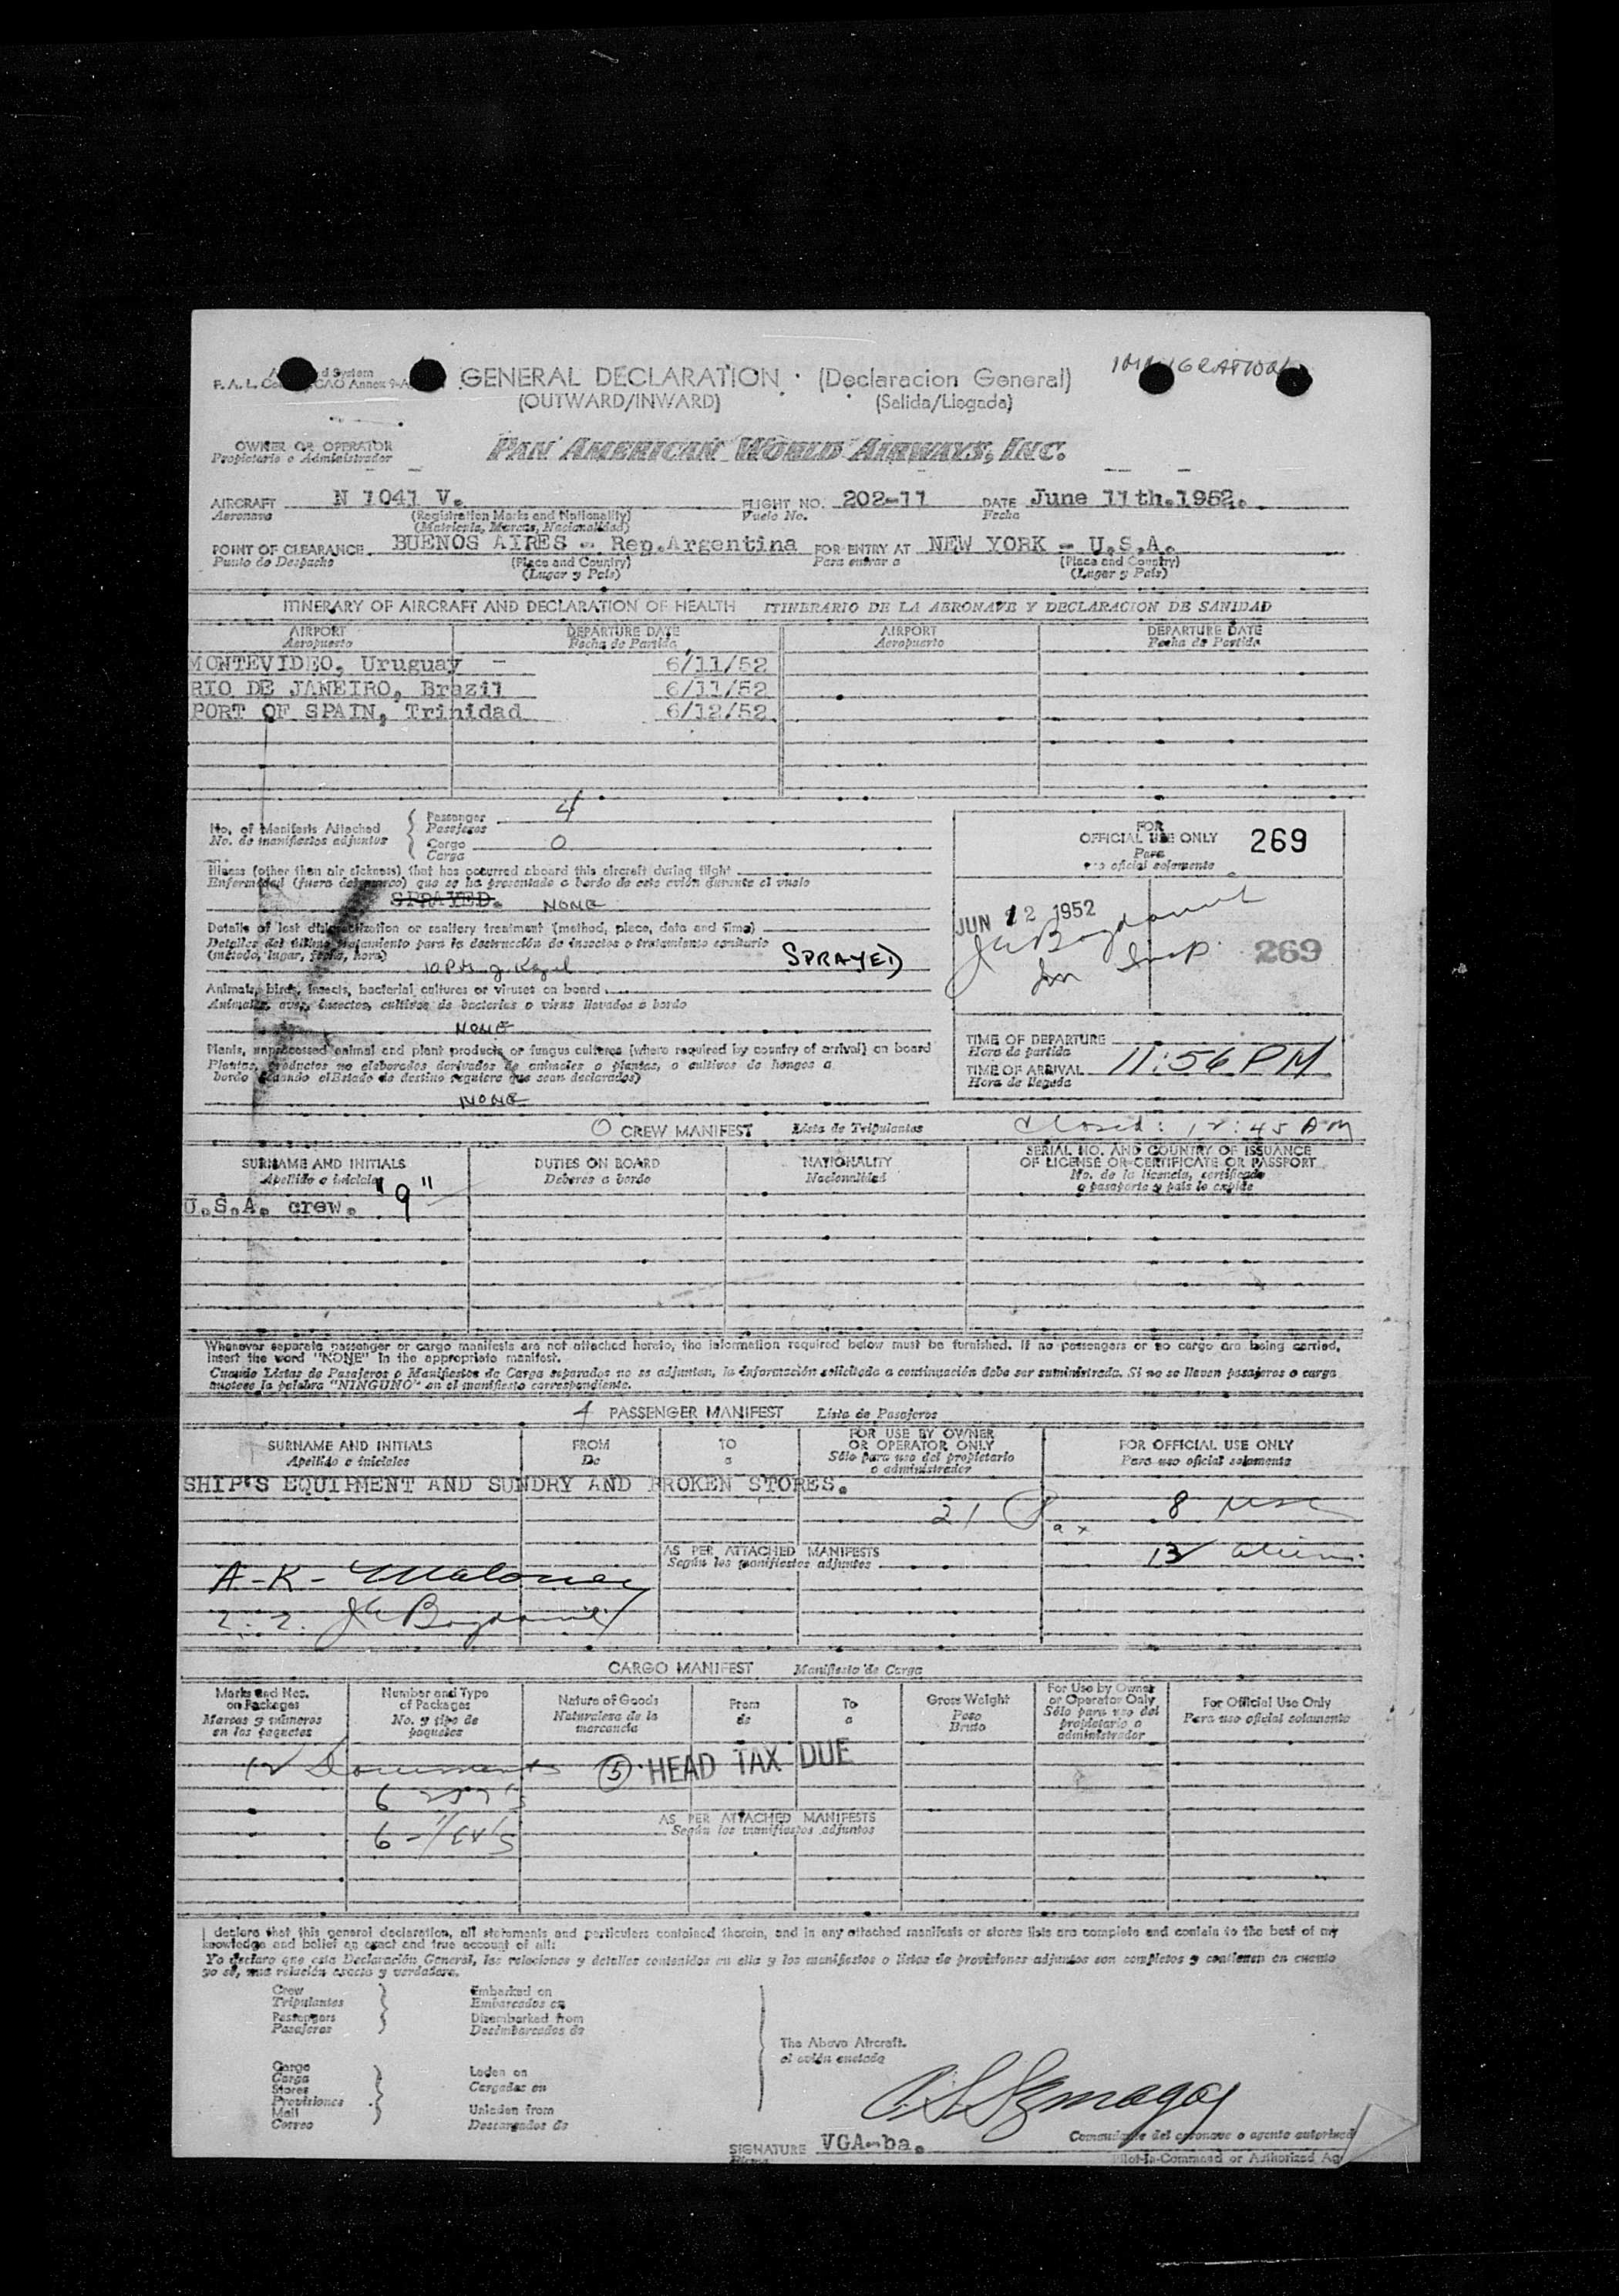 IMMIGRATION
GENERAL DECLARATION · (Declaracion General)
(OUTWARD/INWARD) (Salida/Llegada)
OWNER OR OPERATOR
Propietario o Administrador
PAN AMERICAN WORLD AIRWAYS, INC.
AIRCRAFT N 1041 V. FLIGHT NO. 202-11 DATE June 11th.1952.
Aeronave (Registration Marks and Nationality) Vuelo No. Fecha
(Matricula, Marcas, Nacionalidad)
POINT OF CLEARANCE BUENOS AIRES - Rep.Argentina FOR ENTRY AT NEW YORK - U.S.A.
Punto de Despacho (Place and Country) Para entrar a (Place and Country)
(Lugar y País) (Lugar y País)
ITINERARY OF AIRCRAFT AND DECLARATION OF HEALTH ITINERARIO DE LA AERONAVE Y DECLARACION DE SANIDAD
AIRPORT DEPARTURE DATE AIRPORT DEPARTURE DATE
Aeropuerto Fecha de Partida Aeropuerto Fecha de Partida
MONTEVIDEO, Uruguay - 6/11/52
RIO DE JANEIRO, Brazil 6/11/52
PORT OF SPAIN, Trinidad 6/12/52
No. of Manifests Attached Passenger 4
No. de manifiestos adjuntos Pasajeros
Cargo 0
Carga
Illness (other than air sickness) that has occurred aboard this aircraft during flight
Enfermedad (fuera del mareo) que se ha presentado a bordo de este avión durante el vuelo
SPRAYED. NONE
Details of last disinsectization or sanitary treatment (method, place, date and time)
Detalles del último tratamiento para la destrucción de insectos o tratamiento sanitario
(método, lugar, fecha, hora)
10 PM SPRAYED
Animals, birds, insects, bacterial cultures or viruses on board
Animales, aves, insectos, cultivos de bacterias o virus llevados a bordo
NONE
Plants, unprocessed animal and plant products or fungus cultures (where required by country of arrival) on board
Plantas, productos no elaborados derivados de animales o plantas, o cultivos de hongos a
bordo (cuando el Estado de destino requiere que sean declarados)
NONE
FOR
OFFICIAL USE ONLY 269
Para
uso oficial solamente
JUN 12 1952
269
TIME OF DEPARTURE
Hora de partida
TIME OF ARRIVAL 11:56 PM
Hora de llegada
Closed: 12:45 AM
0 CREW MANIFEST Lista de Tripulantes
SURNAME AND INITIALS DUTIES ON BOARD NATIONALITY SERIAL NO. AND COUNTRY OF ISSUANCE
Apellido e iniciales Deberes a bordo Nacionalidad OF LICENSE OR CERTIFICATE OR PASSPORT
No. de la licencia, certificado
o pasaporte y país lo expide
U.S.A. crew. "9"
Whenever separate passenger or cargo manifests are not attached hereto, the information required below must be furnished. If no passengers or no cargo are being carried,
insert the word "NONE" in the appropriate manifest.
Cuando Listas de Pasajeros o Manifiestos de Carga separados no se adjuntan, la información solicitada a continuación debe ser suministrada. Si no se llevan pasajeros o carga
anótese la palabra "NINGUNO" en el manifiesto correspondiente.
4 PASSENGER MANIFEST Lista de Pasajeros
SURNAME AND INITIALS FROM TO FOR USE BY OWNER FOR OFFICIAL USE ONLY
Apellido e iniciales De a OR OPERATOR ONLY Para uso oficial solamente
Sólo para uso del propietario
o administrador
SHIP'S EQUIPMENT AND SUNDRY AND BROKEN STORES.
21 Pax 8 USC
AS PER ATTACHED MANIFESTS 13 aliens
Según los manifiestos adjuntos
A-K- Maloney
CARGO MANIFEST Manifiesto de Carga
Marks and Nos. Number and Type Nature of Goods From To Gross Weight For Use by Owner For Official Use Only
on Packages of Packages Naturaleza de la de a Peso or Operator Only Para uso oficial solamente
Marcas y números No. y tipo de mercancía Bruto Sólo para uso del
en los paquetes paquetes propietario o
administrador
12 Documents 5 HEAD TAX DUE
AS PER ATTACHED MANIFESTS
Según los manifiestos adjuntos
I declare that this general declaration, all statements and particulars contained therein, and in any attached manifests or stores lists are complete and contain to the best of my
knowledge and belief an exact and true account of all:
Yo declaro que esta Declaración General, las relaciones y detalles contenidos en ella y los manifiestos o listas de provisiones adjuntos son completos y contienen en cuanto
yo sé, una relación exacta y verdadera.
Crew Embarked on
Tripulantes Embarcados en
Passengers Disembarked from
Pasajeros Desembarcados de
The Above Aircraft.
el avión enotado
Cargo Laden on
Carga Cargados en
Stores
Provisiones
Mail Unladen from
Correo Descargados de
SIGNATURE VGA-ba. Comandante del aeronave o agente autorizad
Firma Pilot-In-Command or Authorized Ag